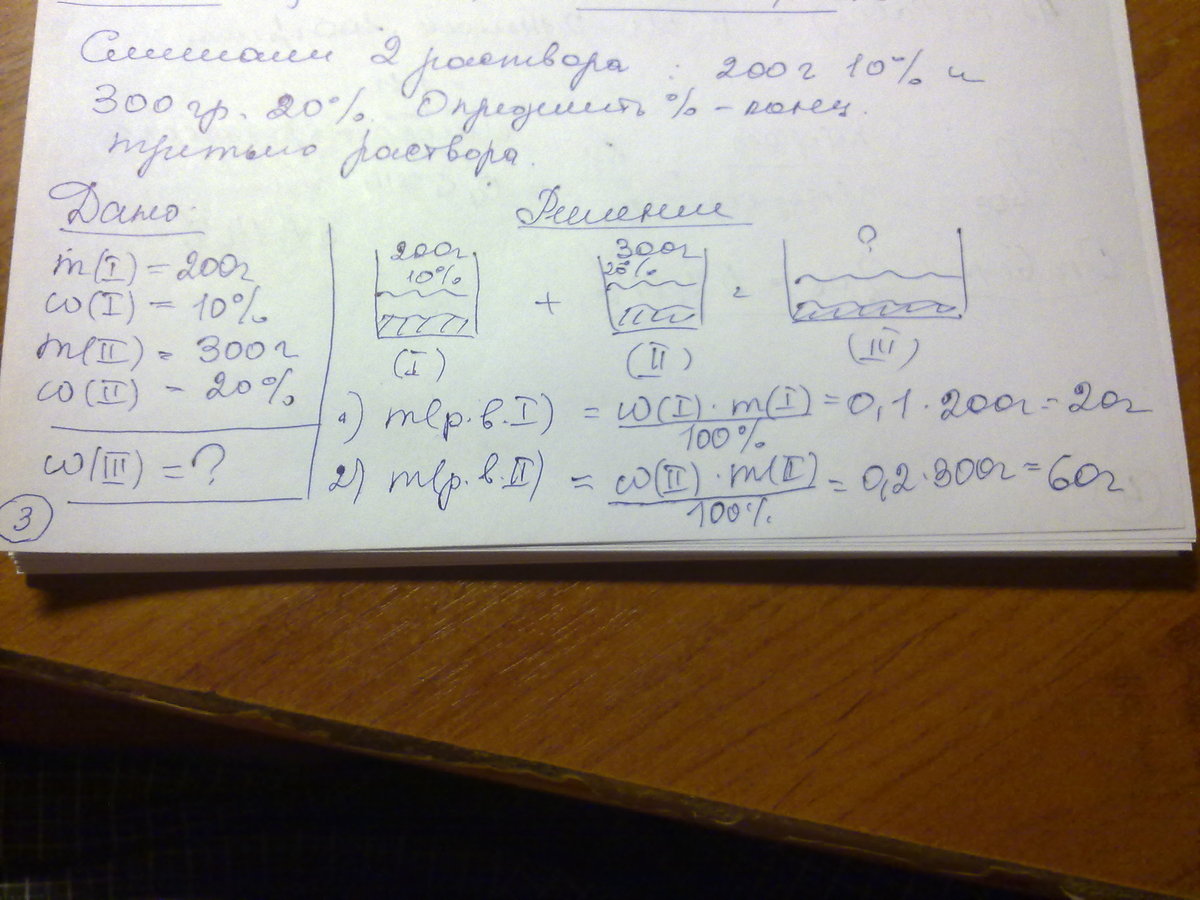 Смешали 2 раствора : 200г 10% и
300 гр. 20%. Определить % - конц.
третьего раствора.
Дано:
m(I) = 200г
ω(I) = 10%
m(II) = 300г
ω(II) = 20%
ω(III) = ?
3
Решение
200г 10% + 300г 20% = ?
(I) (II) (III)
1) m(р.в.I) = ω(I) · m(I) / 100% = 0,1 · 200г = 20г
2) m(р.в.II) = ω(II) · m(II) / 100% = 0,2 · 300г = 60г